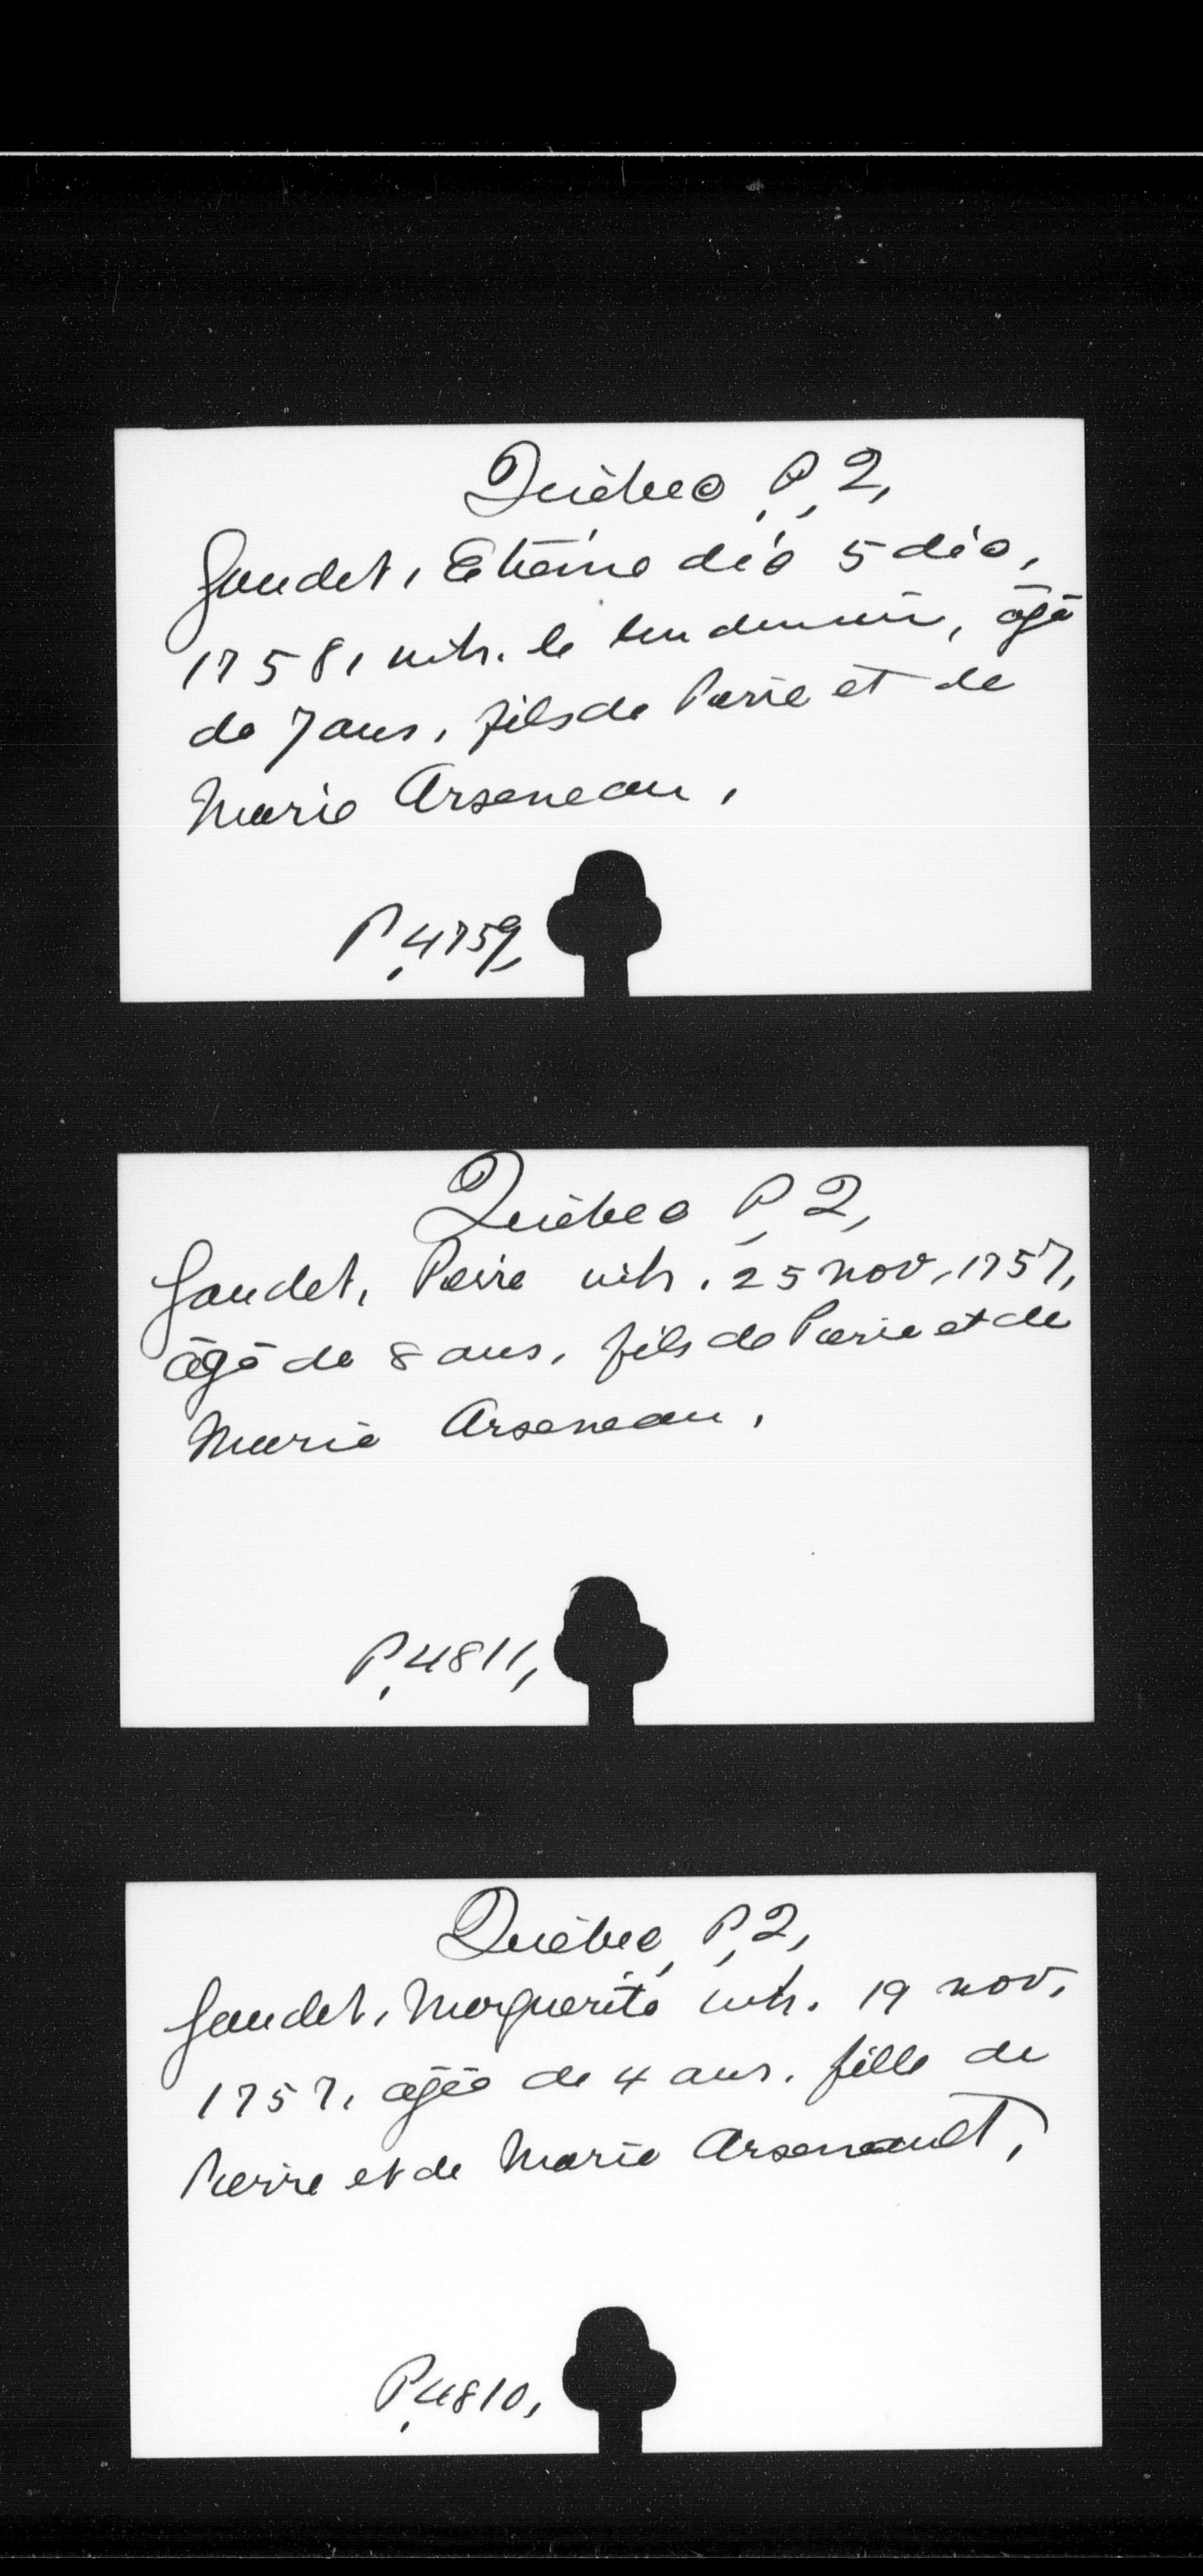 Québec P.Q.
Gaudet, Etienne déc 5 déc.
1758, inh. le lendemain, âgé
de 7 ans, fils de Pierre et de
Marie Arseneau.
P. 4759,
Québec P.Q.
Gaudet, Pierre inh. 25 nov. 1757,
âgé de 8 ans, fils de Pierre et de
Marie Arseneau.
P. 4811,
Québec, P.Q.
Gaudet, Marguerite inh. 19 nov.
1757, agée de 4 ans, fille de
Pierre et de Marie Arseneault.
P. 4810,